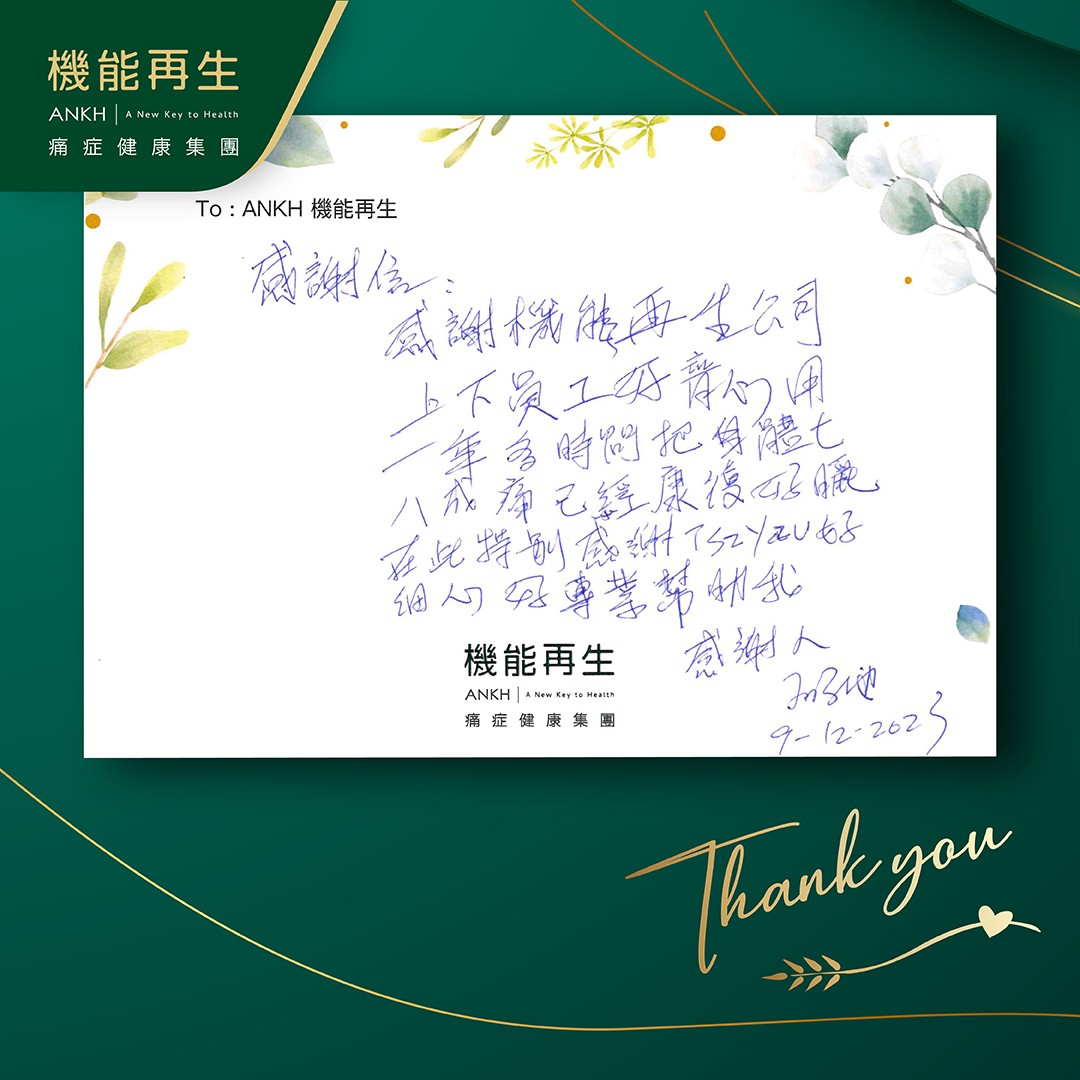 機能再生
ANKH | A New Key to Health
痛症健康集團
To : ANKH 機能再生
感謝信：
感謝機能再生公司
上下員工好齊心用
一年多時間把身體七
八成痛已經康復好曬
在此特別感謝TSZ YAU好
細心好專業幫助我
機能再生
ANKH | A New Key to Health
痛症健康集團
感謝人
9-12-2023
Thank you